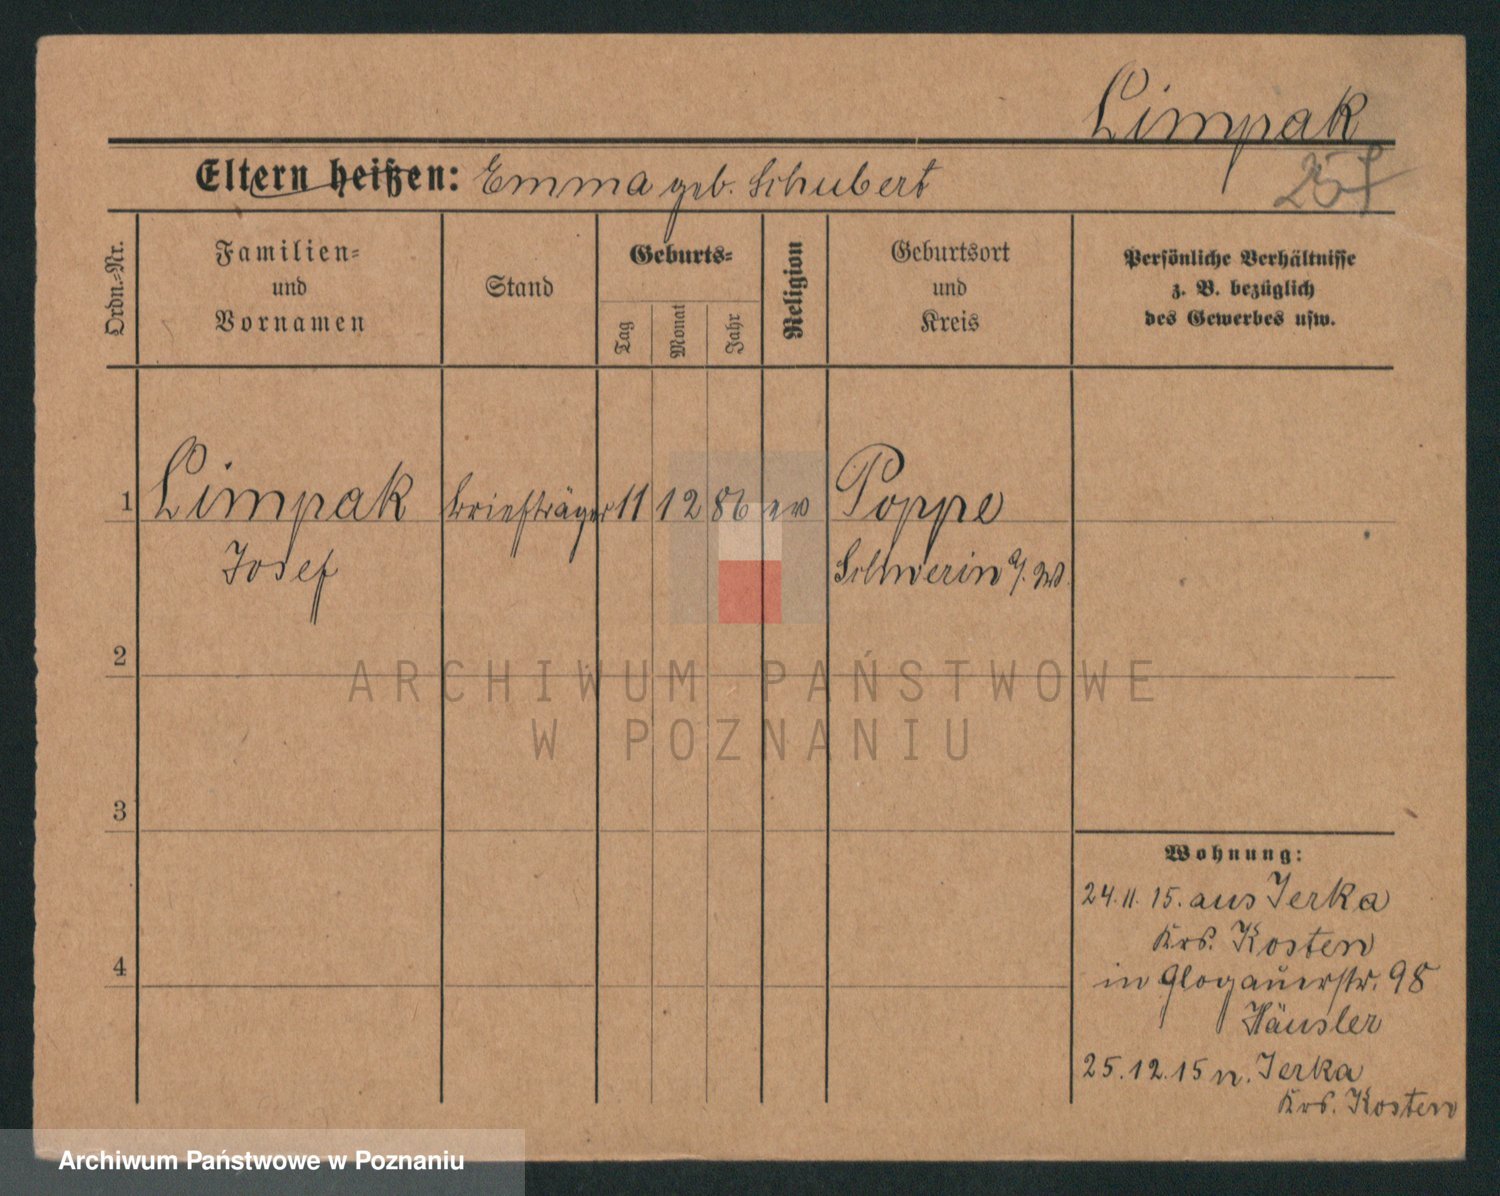 Limpak
Eltern heißen: Emma geb. Schubert
Ordn.-Nr.
Familien-
und
Vornamen
Stand
Geburts-
Tag
Monat
Jahr
Religion
Geburtsort
und
Kreis
Persönliche Verhältnisse
z. B. bezüglich
des Gewerbes usw.
1 Limpak Briefträger 11 12 86 ev Poppe
Josef Schwerin a/. W.
2
3
4
Wohnung:
24.11.15. aus Jerka
Krs. Kosten
in Glogauerstr. 98
Häusler
25.12.15 n. Jerka
Krs. Kosten
ARCHIWUM PAŃSTWOWE
W POZNANIU
Archiwum Państwowe w Poznaniu